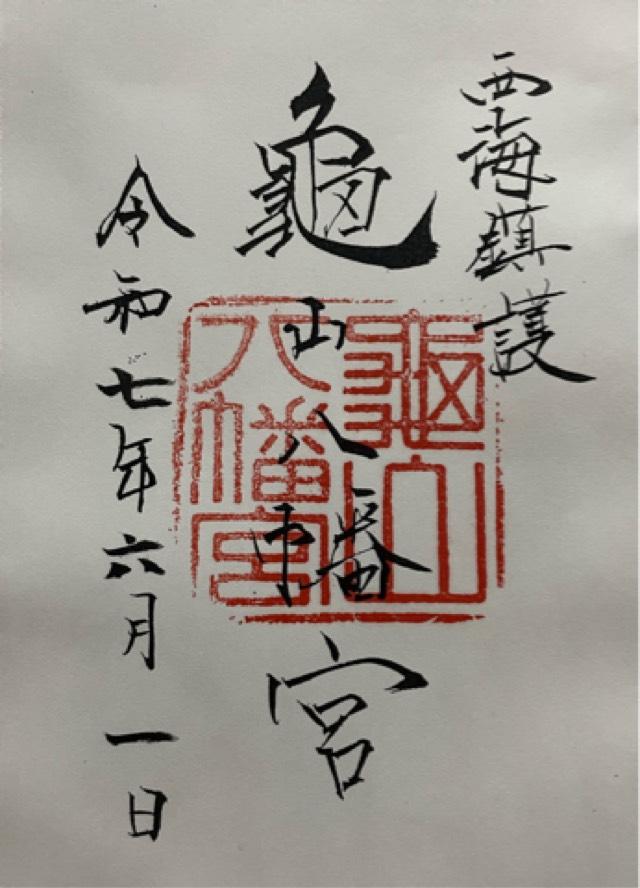 西海鎮護
龜山八幡宮
龜山八幡宮
令和七年六月一日